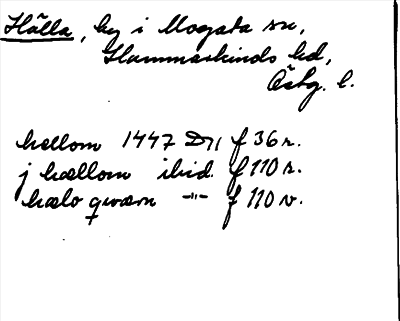 Hälla, by i Mogata sn,
Hammarkinds hd,
Östg. l.
hellom 1447 D11 f 36 r.
j hællom ibid. f 110 r.
hælo qwærn -"- f 110 v.